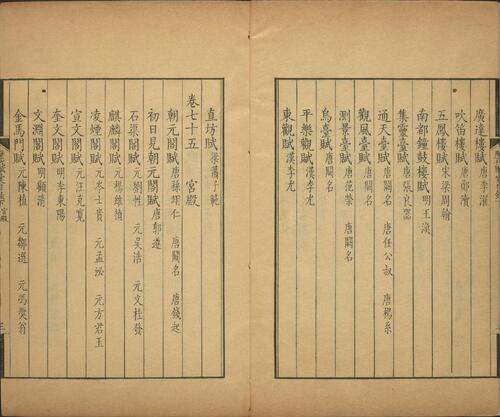 廣達樓賦唐李濯
吹笛樓賦唐鄭瀆
五鳳樓賦宋梁周翰
南都鐘鼓樓賦明王渙
集靈臺賦唐張良器
通天臺賦唐闕名 唐任公叔 唐楊系
觀風臺賦唐闕名
測景臺賦唐范榮 唐闕名
烏臺賦唐闕名
平樂觀賦漢李尤
東觀賦漢李尤
直坊賦梁蕭子範
卷七十五 宮殿
朝元閣賦唐孫翌仁 唐闕名 唐錢起
初日見朝元閣賦唐郭遵
石渠閣賦元劉性 元吳浩 元文桂發
麒麟閣賦元楊維楨
凌煙閣賦元岑士貴 元孟泌 元方君玉
宣文閣賦元汪克寬
奎文閣賦明李東陽
文淵閣賦明顧清
金馬門賦元陳植 元鄒選 元馮勉翁
宮殿
三